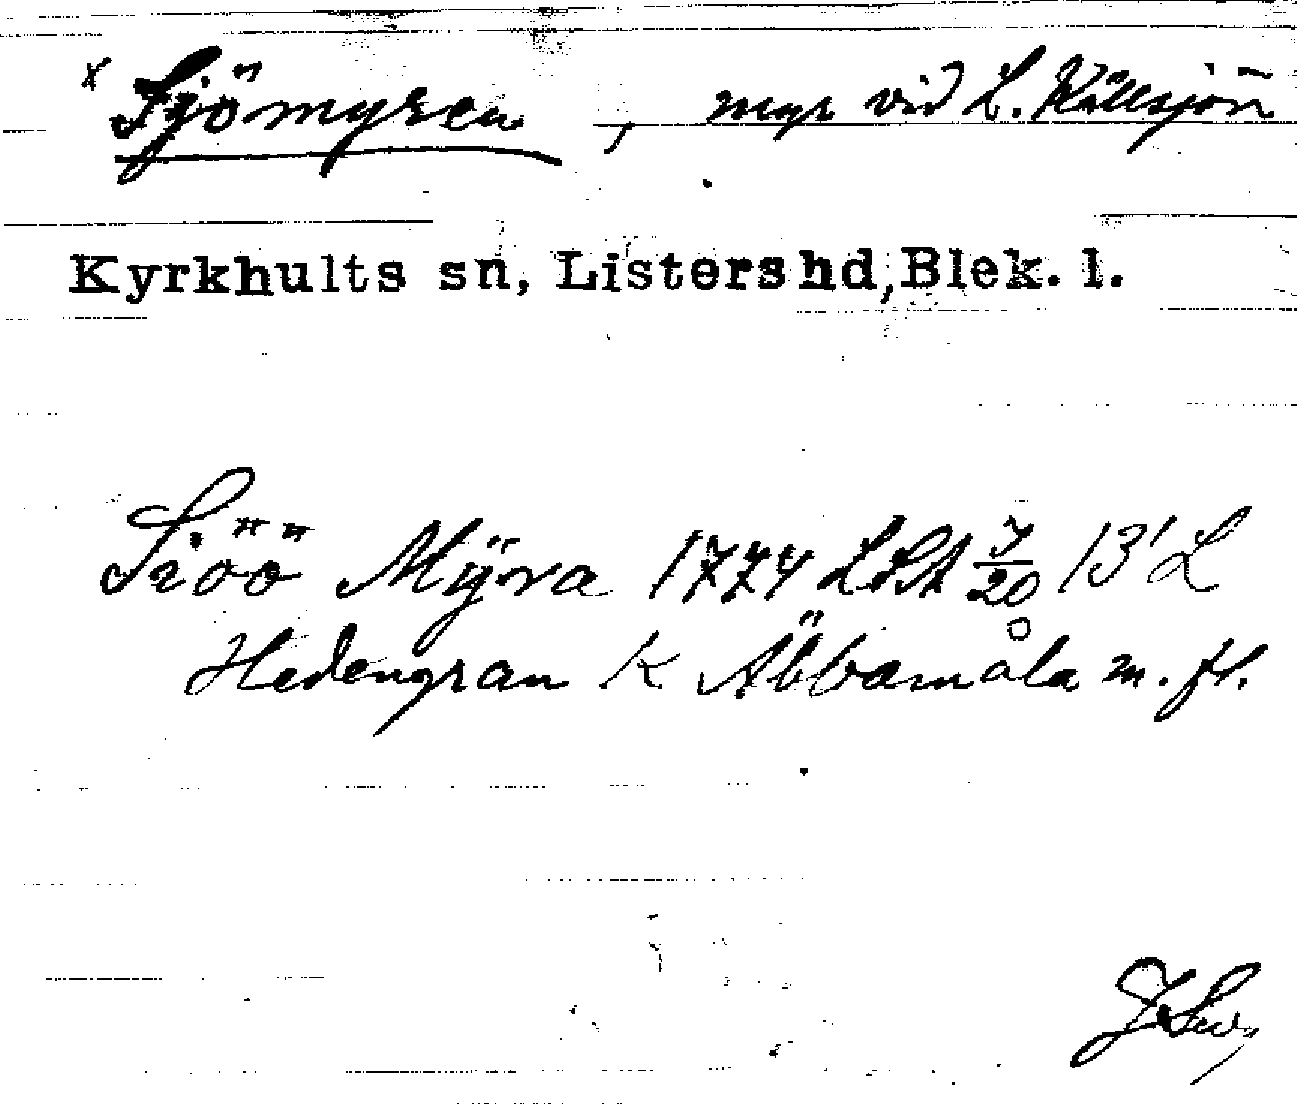 x Sjömyren, myr vid L. Källsjön
Kyrkhults sn, Listers hd, Blek. l.
Siöö Mÿra 1774 LSA 7/20 13' L
Hedengran K Äbbamåla m. fl.